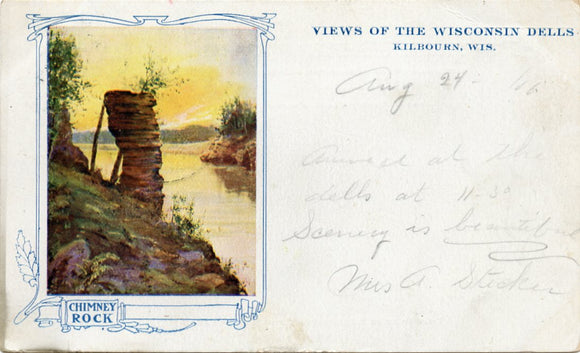 VIEWS OF THE WISCONSIN DELLS
KILBOURN, WIS.
Aug 24 - 06
Arrived at the
dells at 11-30
Scenery is beautiful
Mrs A. Stecker
CHIMNEY
ROCK